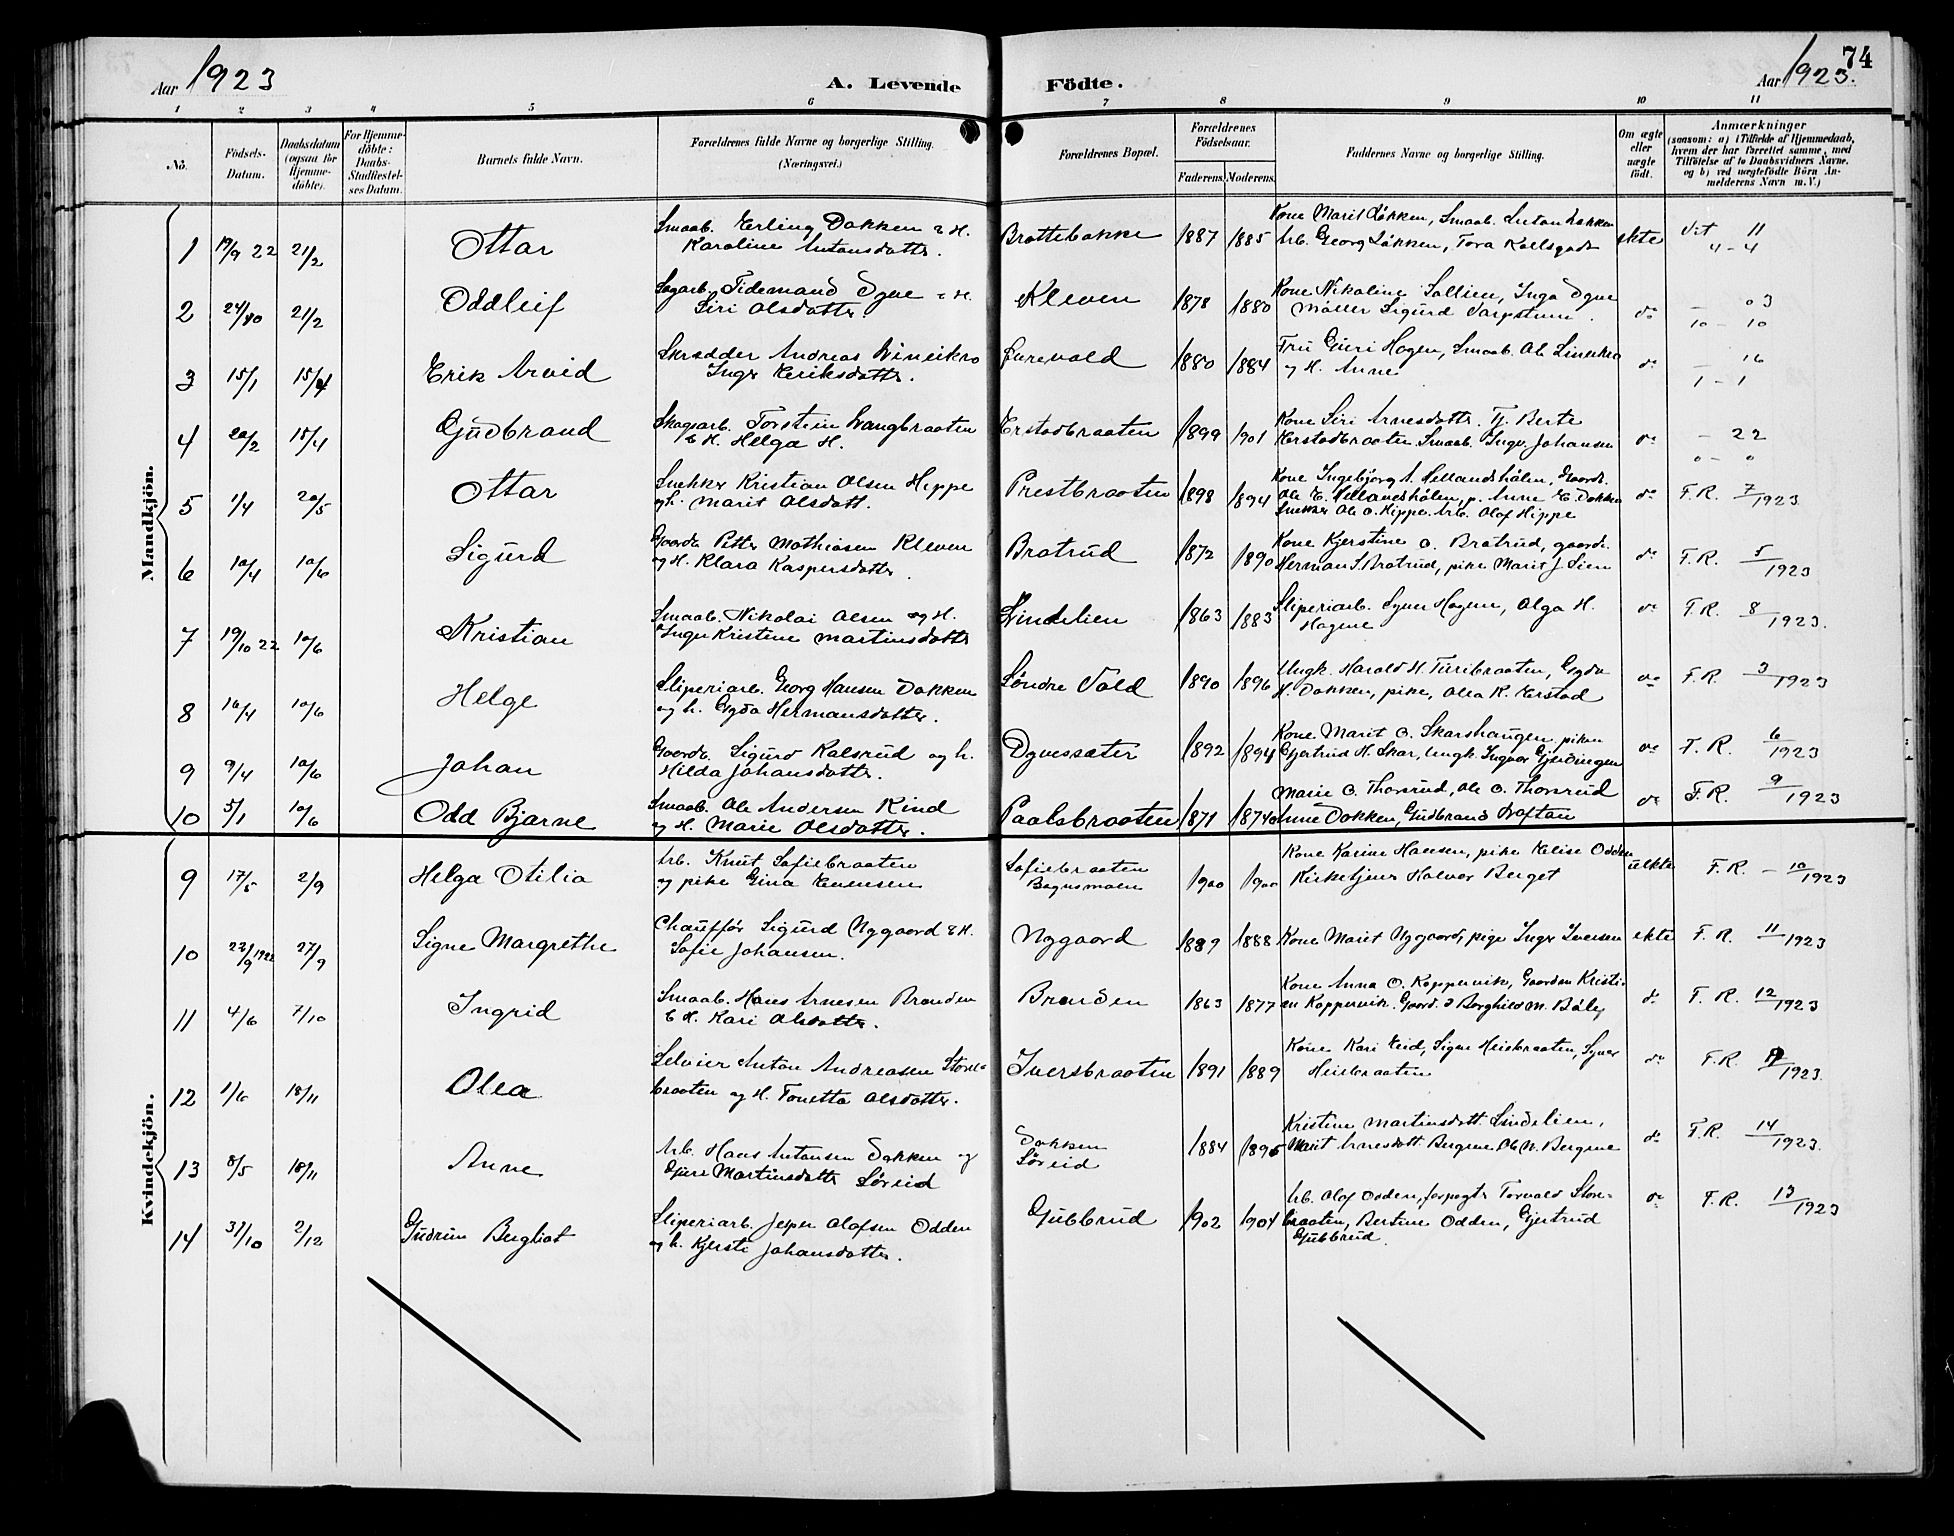 74
Aar 1923
A. Levende
Födte.
Aar 1923.
1 2 3 4 5 6 7 8 9 10 11
Nö.
Födsels-
Datum.
Daabsdatum
(ogsaa för
Hjemme-
döbte).
For Hjemme-
döbte:
Daabs-
Stadfæstel-
ses Datum.
Barnets fulde Navn.
Forældrenes fulde Navne og borgerlige Stilling.
(Næringsvei.)
Forældrenes Bopæl.
Forældrenes
Födselsaar.
Faderens. Moderens.
Faddernes Navne og borgerlige Stilling.
Om ægte
eller
uægte
födt.
Anmærkninger
(saasom: a) i Tilfælde af Hjemmedaab,
hvem der har forrettet samme, med
Tilföielse af to Daabsvidners Navne.
og b) ved uægtefödte Börn An-
melderens Navn m. V.)
Mandkjön.
1 19/9 22 21/2 Ottar
Smaab. Erling Dokken & H.
Karoline Antonsdatter.
Brattebakke 1887 1885
Kone Marit Løkken, Smaab. Anton Løkken
Arb. Georg Løkken, Tora
ekte
11
4-4
2 24/10 21/2 Oddleif
Sagarb. Tidemand Dgne & H.
Siri Olsdatter.
Kleven 1878 1880
Kone Nikoline Sollien, Inga Dgne
Møller Sigurd
do
10-10
3 15/1 15/4 Erik Arvid
Skrædder Andreas
Inger Eriksdatter.
1880 1884
Fru Guri Hagen, Smaab. Ole
og H. Anne
do
16
1-1
4 20/2 15/4 Gudbrand
Skogsarb. Torstein Vangbraaten
& H. Helga H.
Erstadbraaten 1899 1901
Kone Siri Arnesdatter. Tj. Berte
Erstadbraaten Smaab. Ingv. Johansen
do
- 22
0-0
5 1/4 20/5 Ottar
Snekker Kristian Olsen Hippe
og h. Marit Olsdatt.
Prestbraaten 1898 1894
Kone Ingebjørg A. Hellandshølen, Gaardb.
Ole E. Hellandshølen, p. Anne E. Dokken
Snekker Ole O. Hippe. Arb. Olaf Hippe
do F.R. 7/1923
6 10/4 10/6 Sigurd
Gaardb. Petter Mathiasen Kleven
og H. Klara Kaspersdatter.
Bratrud 1872 1890
Kone Kjerstine O. Bratrud, gaardb.
Herman S. Bratrud, pike Marit J. Lien
do F.R. 5/1923
7 19/10 22 10/6 Kristian
Smaab. Nikolai Olsen og H.
Inger Kristine Martinsdatter
Lindelien 1863 1883
Sliperiarb. Syver Hagene, Olga H.
Hagene
do F.R. 8/1923.
8 10/4 10/6 Helge
Sliperiarb. Georg Hansen Dokken
og h. Gyda Hermansdatter.
Søndre Vold 1890 1896
Ungk. Harald H. Turibraaten, Gyda
H. Dokken, pike, Olea K. Erstad
do F.R. 3/1923
9 9/4 10/6 Johan
Gaardb. Sigurd Kalsrud og h.
Hilda Johansdatter.
Dgnessæter 1892 1894
Kone Marit O. Skarshaugen, piken
Gjertrud H. Skar, Ungk. Ingvar Gjeidingen
do F.R. 6/1923
10 5/1 10/6 Odd Bjarne
Smaab. Ole Andersen Rind
og H. Marie Olsdatter.
Paalsbraaten 1871 1874
Marie O. Thorsrud, Ole O. Thorsrud
Anne Dokken, Gudbrand
do F.R. 9/1923
Kvindekjön.
9 17/5 2/9 Helga Otilia
Arb. Knut Sofiebraaten
og pike Gina Evensen
Sofiebraaten
Bagnsmoen
1900 1900
Kone Karine Hansen, pike Elise Odden
Kirketjener Halvor Berget
uekte F.R. - 10/1923
10 22/9 1922 27/9 Signe Margrethe
Chauffør Sigurd Nygaard & H.
Sofie Johansen.
Nygaard 1889 1888
Kone Marit Nygaard, pige Inger Iversen
ekte F.R. 11/1923
11 4/6 7/10 Ingrid
Smaab. Hans Arnesen Branden
& H. Kari Olsdatter.
Branden 1863 1877
Kone Anna O. Koppervik, Gaardm Kristi-
an Koppervik. Gaard. d Borghild M. Bøley
do F.R. 12/1923
12 1/6 18/11 Olea
Selveier Anton Andreasen Store-
braaten og H. Tonetta Olsdatter.
Iversbraaten 1891 1889
Kone Kari Eid, Signe Heiebraaten, Syver
Heiebraaten
do F.R. /1923.
13 8/5 18/11 Anne
Arb. Hans Antonsen Dokken og
Guri Martinsdatter Søreid
Dokken
Søreid
1884 1895
Kristine Martinsdatt. Lindelien,
Marit Arnesdatt. Bergene Ole N. Bergene
do F.R. 14/1923.
14 31/10 2/12 Gudrun Bergliot
Sliperiarb. Jesper Olafsen Odden
og h. Kjersti Johansdatter.
Gubbrud 1902 1904
Arb. Olaf Odden, forpagt. Torvald Store-
braaten, Bertine Odden, Gjertrud
Gubbrud.
do F.R. 13/1923